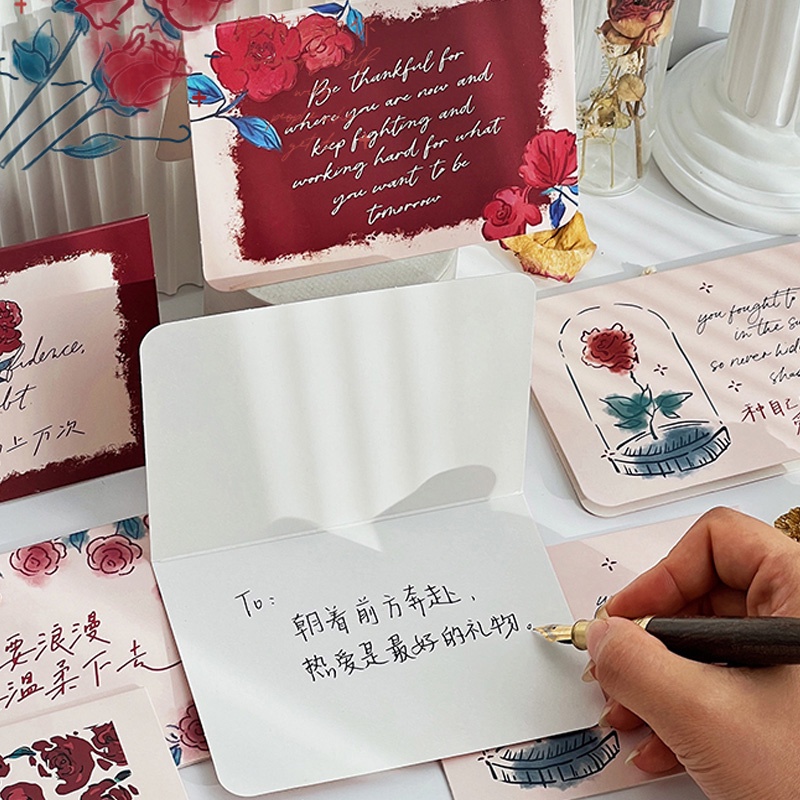 Be thankful for
where you are now and
keep fighting and
working hard for what
you want to be
tomorrow
you fought to
in the
so never hid
种自己
To:
朝着前方奔赴，
热爱是最好的礼物。
bt.
上万次
要浪漫
温柔下去